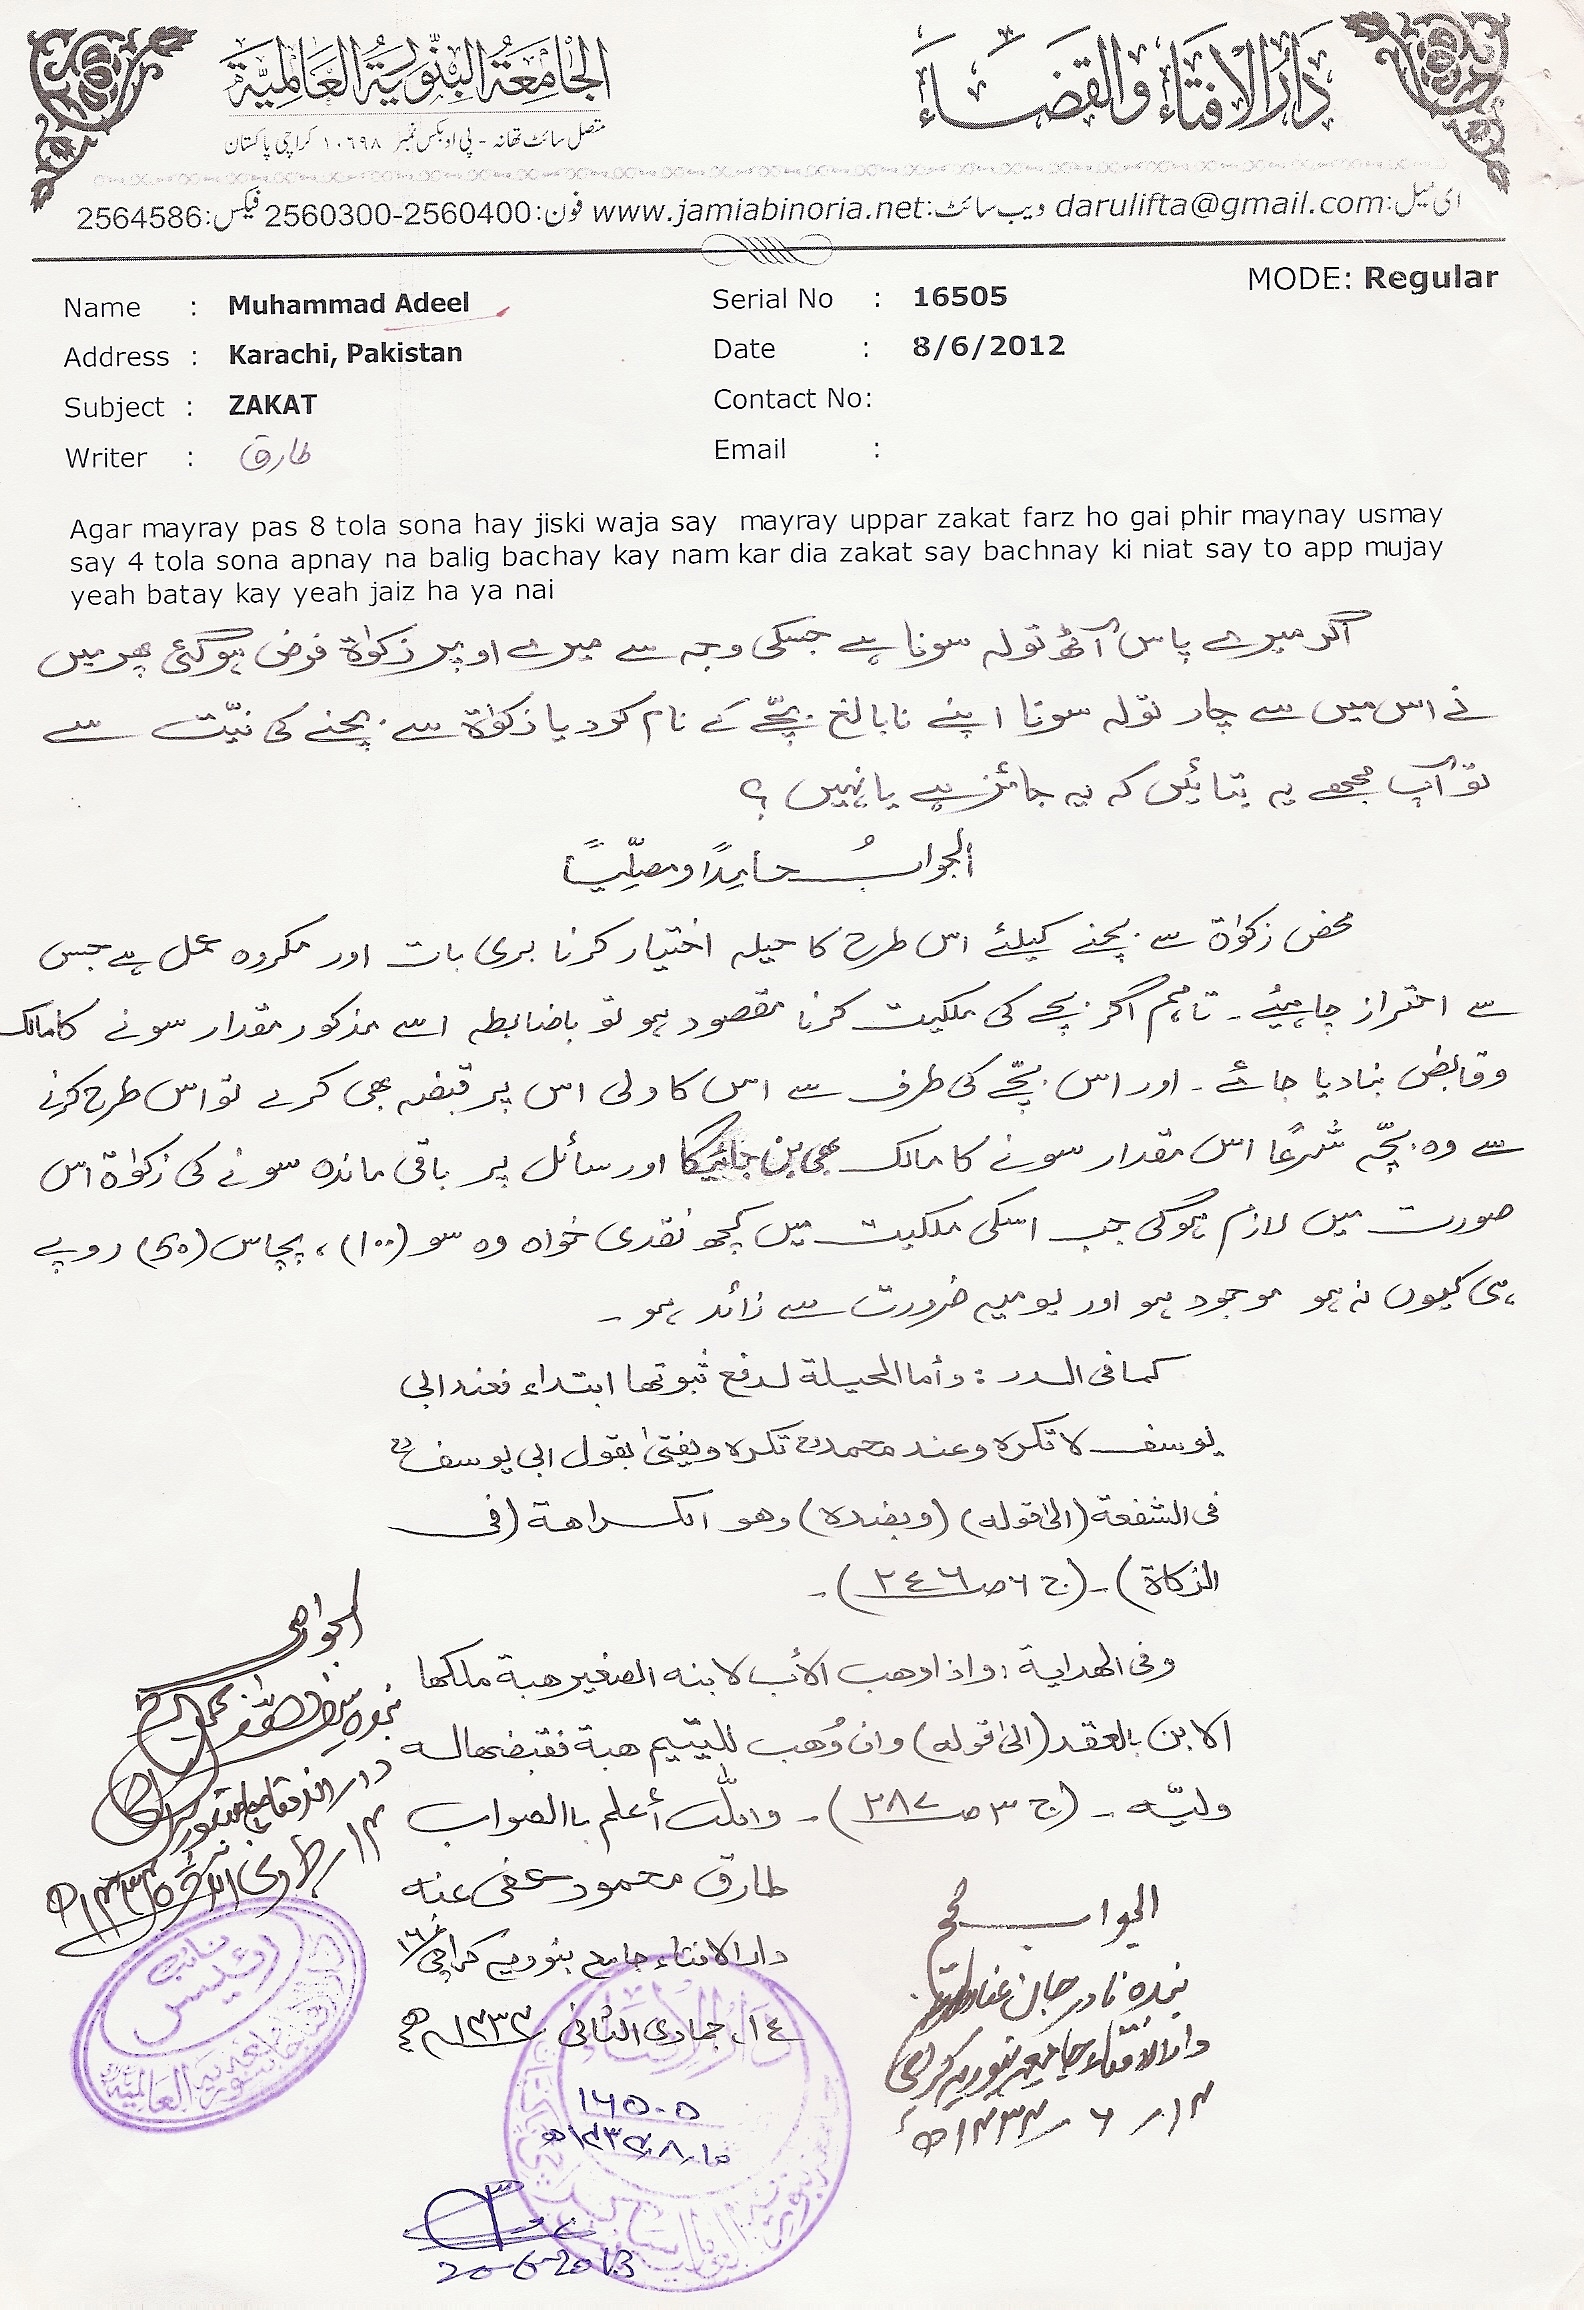 دَارُالْاِفْتَاءِ وَالْقَضَاءِ
الْجَامِعَةُ الْبِنُّورِيَّةُ الْعَالَمِيَّةُ
متصل سائٹ تھانہ - پی او بکس نمبر ۱۰۶۹۸ کراچی پاکستان
ای میل:darulifta@gmail.com ویب سائٹ:www.jamiabinoria.net فون:2560300-2560400 فیکس:2564586
MODE: Regular
Name : Muhammad Adeel
Serial No : 16505
Address : Karachi, Pakistan
Date : 8/6/2012
Subject : ZAKAT
Contact No:
Writer : طارق
Email :
Agar mayray pas 8 tola sona hay jiski waja say mayray uppar zakat farz ho gai phir maynay usmay
say 4 tola sona apnay na balig bachay kay nam kar dia zakat say bachnay ki niat say to app mujay
yeah batay kay yeah jaiz ha ya nai
اگر میرے پاس آٹھ تولہ سونا ہے جسکی وجہ سے میرے اوپر زکوٰۃ فرض ہوگئی پھر میں
نے اس میں سے چار تولہ سونا اپنے نابالغ بچّے کے نام کردیا زکوٰۃ سے بچنے کی نیّت سے
تو آپ مجھے یہ بتائیں کہ یہ جائز ہے یا نہیں ؟
الجوابُ حامِدًا ومصلّیًا
محض زکوٰۃ سے بچنے کیلئے اس طرح کا حیلہ اختیار کرنا بری بات اور مکروہ عمل ہے جس
سے احتراز چاہیئے ۔ تاہم اگر بچے کی ملکیت کرنا مقصود ہو تو باضابطہ اسے مذکور مقدار سونے کا مالک
وقابض بنادیا جائے ۔ اور اس بچّے کی طرف سے اس کا ولی اس پر قبضہ بھی کرے تو اس طرح کرنے
سے وہ بچّہ شرعًا اس مقدار سونے کا مالک بھی بن جائیگا اور سائل پر باقی ماندہ سونے کی زکوٰۃ اس
صورت میں لازم ہوگی جب اسکی ملکیت میں کچھ نقدی خواہ وہ سو (۱۰۰)، پچاس (۵۰) روپے
ہی کیوں نہ ہو موجود ہو اور یومیہ ضرورت سے زائد ہو ۔
کما فی الدر : وأما الحیلة لدفع ثبوتها ابتداء فعند ابی
یوسف لا تکرہ وعند محمدؒ تکرہ ویفتیٰ بقول ابی یوسفؒ
فی الشفعة (الیٰ قوله) (وبضدہ) وهو الکراهة (فی
الزکاة) ۔ (ج ٦ صـ ٢٤٦) ۔
وفی الهدایة : واذا وهب الأب لابنه الصغیر هبة ملکها
الابن بالعقد (الیٰ قوله) وان وُهب للیتیم هبة فقبضها له
ولیّه ۔ (ج ٣ صـ ٢٨٧) ۔ واللّٰه أعلم باالصواب
طارق محمود عفی عنه
دارالافتاء جامعہ بنوریہ کراچی ١٦
١٤ـ جمادی الثانی ١٤٣٣ھ
الجواب صحیح
بندہ نادر جان
دارالافتاء جامعہ بنوریہ کراچی
١٤ـ ٦ ـ ١٤٣٣ھ
١٦٥٠٥
نائب
رئیس
دَارُ الْاِفْتَاء
20-6-2013